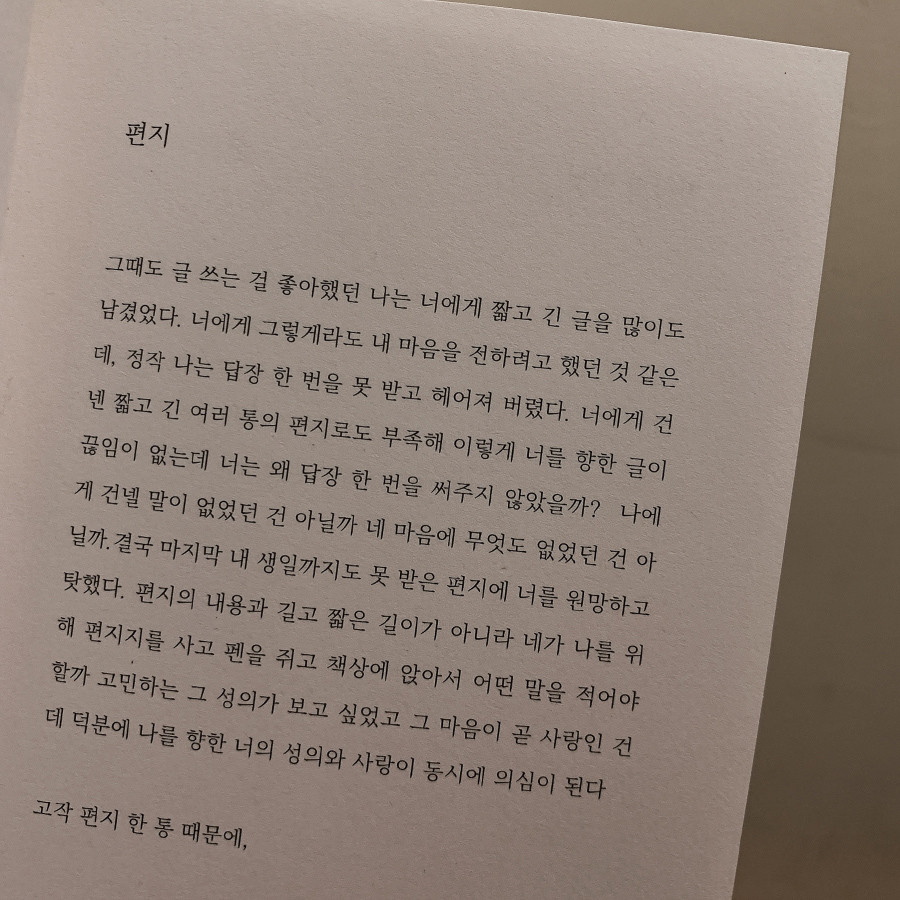 편지
그때도 글 쓰는 걸 좋아했던 나는 너에게 짧고 긴 글을 많이도
남겼었다. 너에게 그렇게라도 내 마음을 전하려고 했던 것 같은
데, 정작 나는 답장 한 번을 못 받고 헤어져 버렸다. 너에게 건
넨 짧고 긴 여러 통의 편지로도 부족해 이렇게 너를 향한 글이
끊임이 없는데 너는 왜 답장 한 번을 써주지 않았을까? 나에
게 건넬 말이 없었던 건 아닐까 네 마음에 무엇도 없었던 건 아
닐까.결국 마지막 내 생일까지도 못 받은 편지에 너를 원망하고
탓했다. 편지의 내용과 길고 짧은 길이가 아니라 네가 나를 위
해 편지지를 사고 펜을 쥐고 책상에 앉아서 어떤 말을 적어야
할까 고민하는 그 성의가 보고 싶었고 그 마음이 곧 사랑인 건
데 덕분에 나를 향한 너의 성의와 사랑이 동시에 의심이 된다
고작 편지 한 통 때문에,